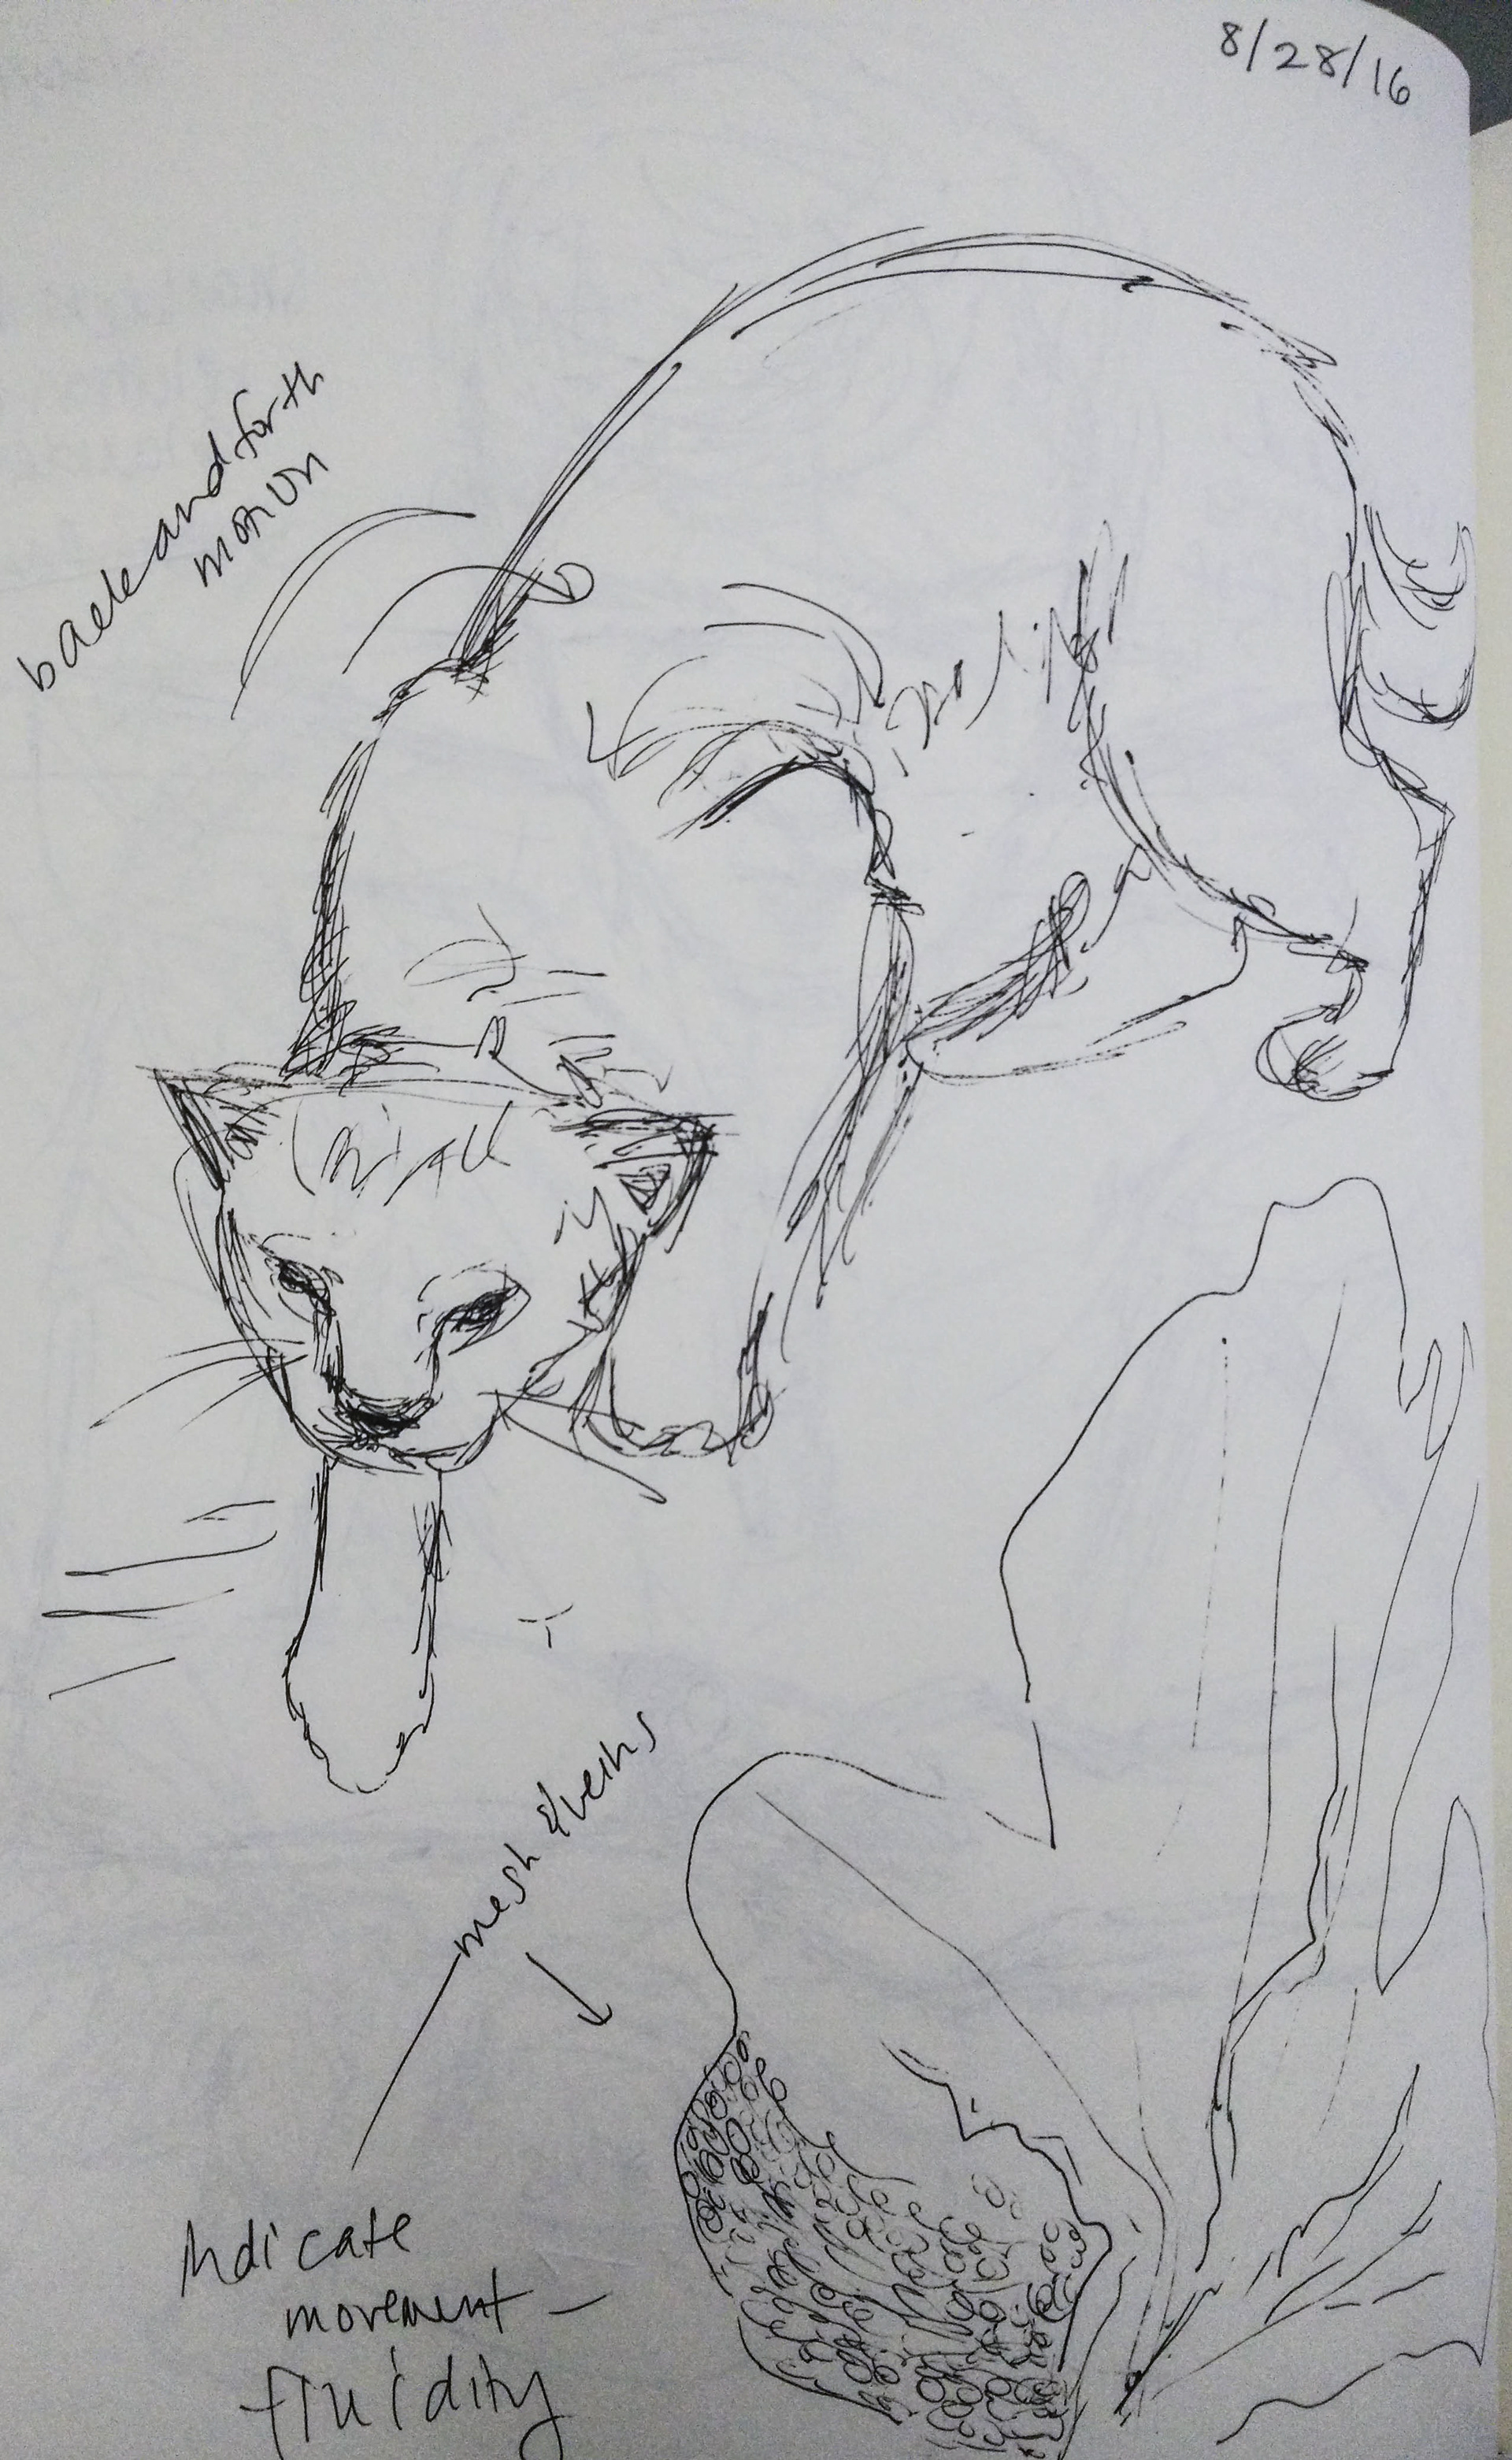 8/28/16
back and forth
motion
mesh & veins
Indicate
movement —
fluidity